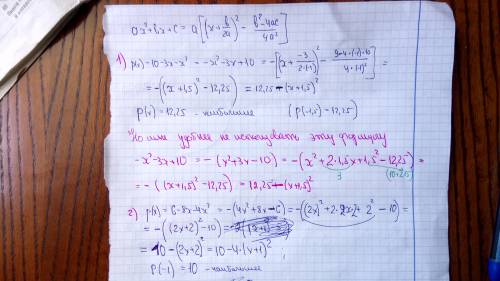 ax²+bx+c = a[(x+b/2a)² - b²-4ac/4a²]
1) p(x)=10-3x-x² = -x²-3x+10 = -[(x+ -3/2·(-1))² - 9-4·(-1)·10/4·(-1)²] =
= -((x+1,5)² - 12,25) = 12,25-(x+1,5)²
p(x)=12,25 - наибольшее (p(-1,5)-12,25)
или удобнее не использовать эту формулу
-x²-3x+10 = -(x²+3x-10) = -(x²+2·1,5x+1,5²-12,25) =
3 (10+2,25)
= -((x+1,5)²-12,25) = 12,25-(x+1,5)²
2) p(x)=6-8x-4x² = -(4x²+8x-6) = -((2x)²+2·2x·2+2²-10) =
= -((2x+2)²-10) =
= 10-(2x+2)² = 10-4·(x+1)²
p(-1)=10 - наибольшее